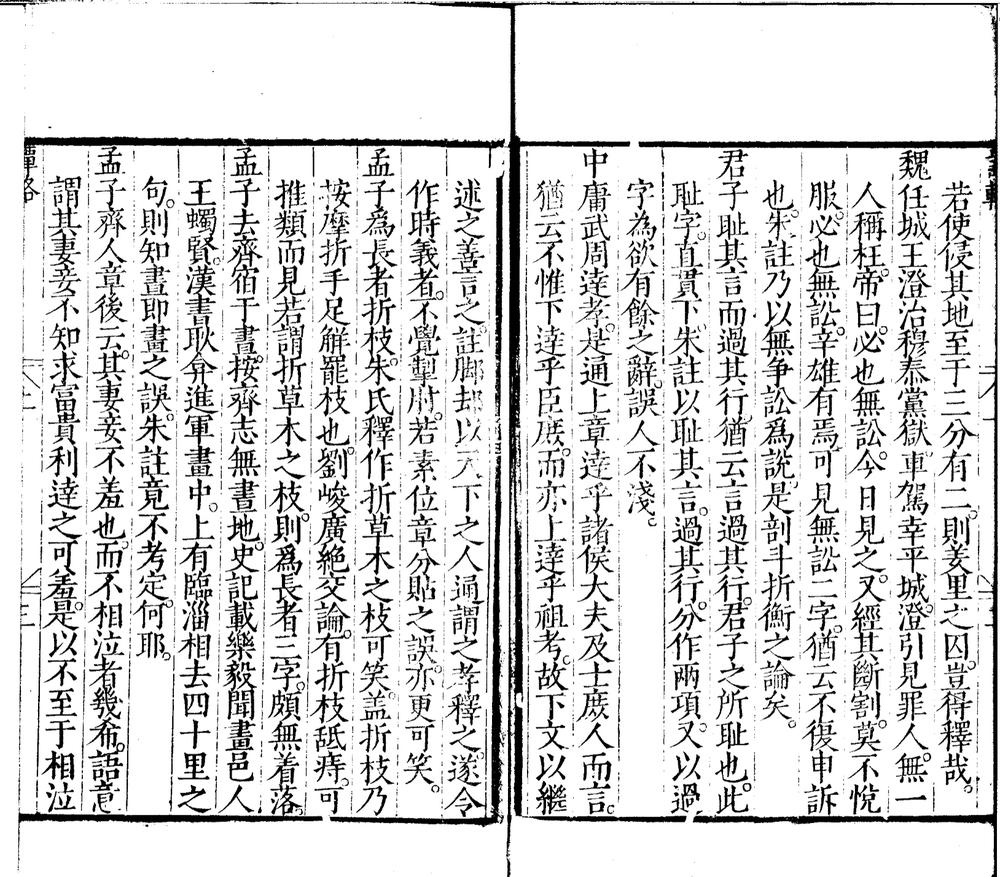 若使侵其地至于三分有二。則羑里之囚。豈得釋哉。
魏任城王澄治穆泰黨獄。車駕幸平城。澄引見罪人。無一
人稱枉。帝曰。必也無訟。今日見之。又經其斷割。莫不悅
服。必也無訟。辛雄有焉。可見無訟二字。猶云不復申訴
也。朱註乃以無爭訟爲說。是剖斗折衡之論矣。
君子耻其言而過其行。猶云言過其行。君子之所耻也。此
耻字。直貫下。朱註以耻其言。過其行。分作兩項。又以過
字為欲有餘之辭。誤人不淺。
中庸武周達孝。是通上章達乎諸侯大夫及士庶人而言。
猶云不惟下達乎臣庶。而亦上達乎祖考。故下文以繼
述之善言之。註脚却以天下之人通謂之孝釋之。遂令
作時義者。不覺掣肘。若素位章分貼之誤。亦更可笑。
孟子爲長者折枝。朱氏釋作折草木之枝可笑。盖折枝乃
按摩折手足解罷枝也。劉峻廣絶交論。有折枝舐痔。可
推類而見若謂折草木之枝。則爲長者三字。頗無着落。
孟子去齊宿于晝。按齊志無晝地。史記載樂毅聞畫邑人
王蠋賢。漢書耿弇進軍畫中。上有臨淄相去四十里之
句。則知晝即畫之誤。朱註竟不考定何耶。
孟子齊人章後云。其妻妾不羞也。而不相泣者幾希。語意
謂其妻妾不知求富貴利達之可羞。是以不至于相泣